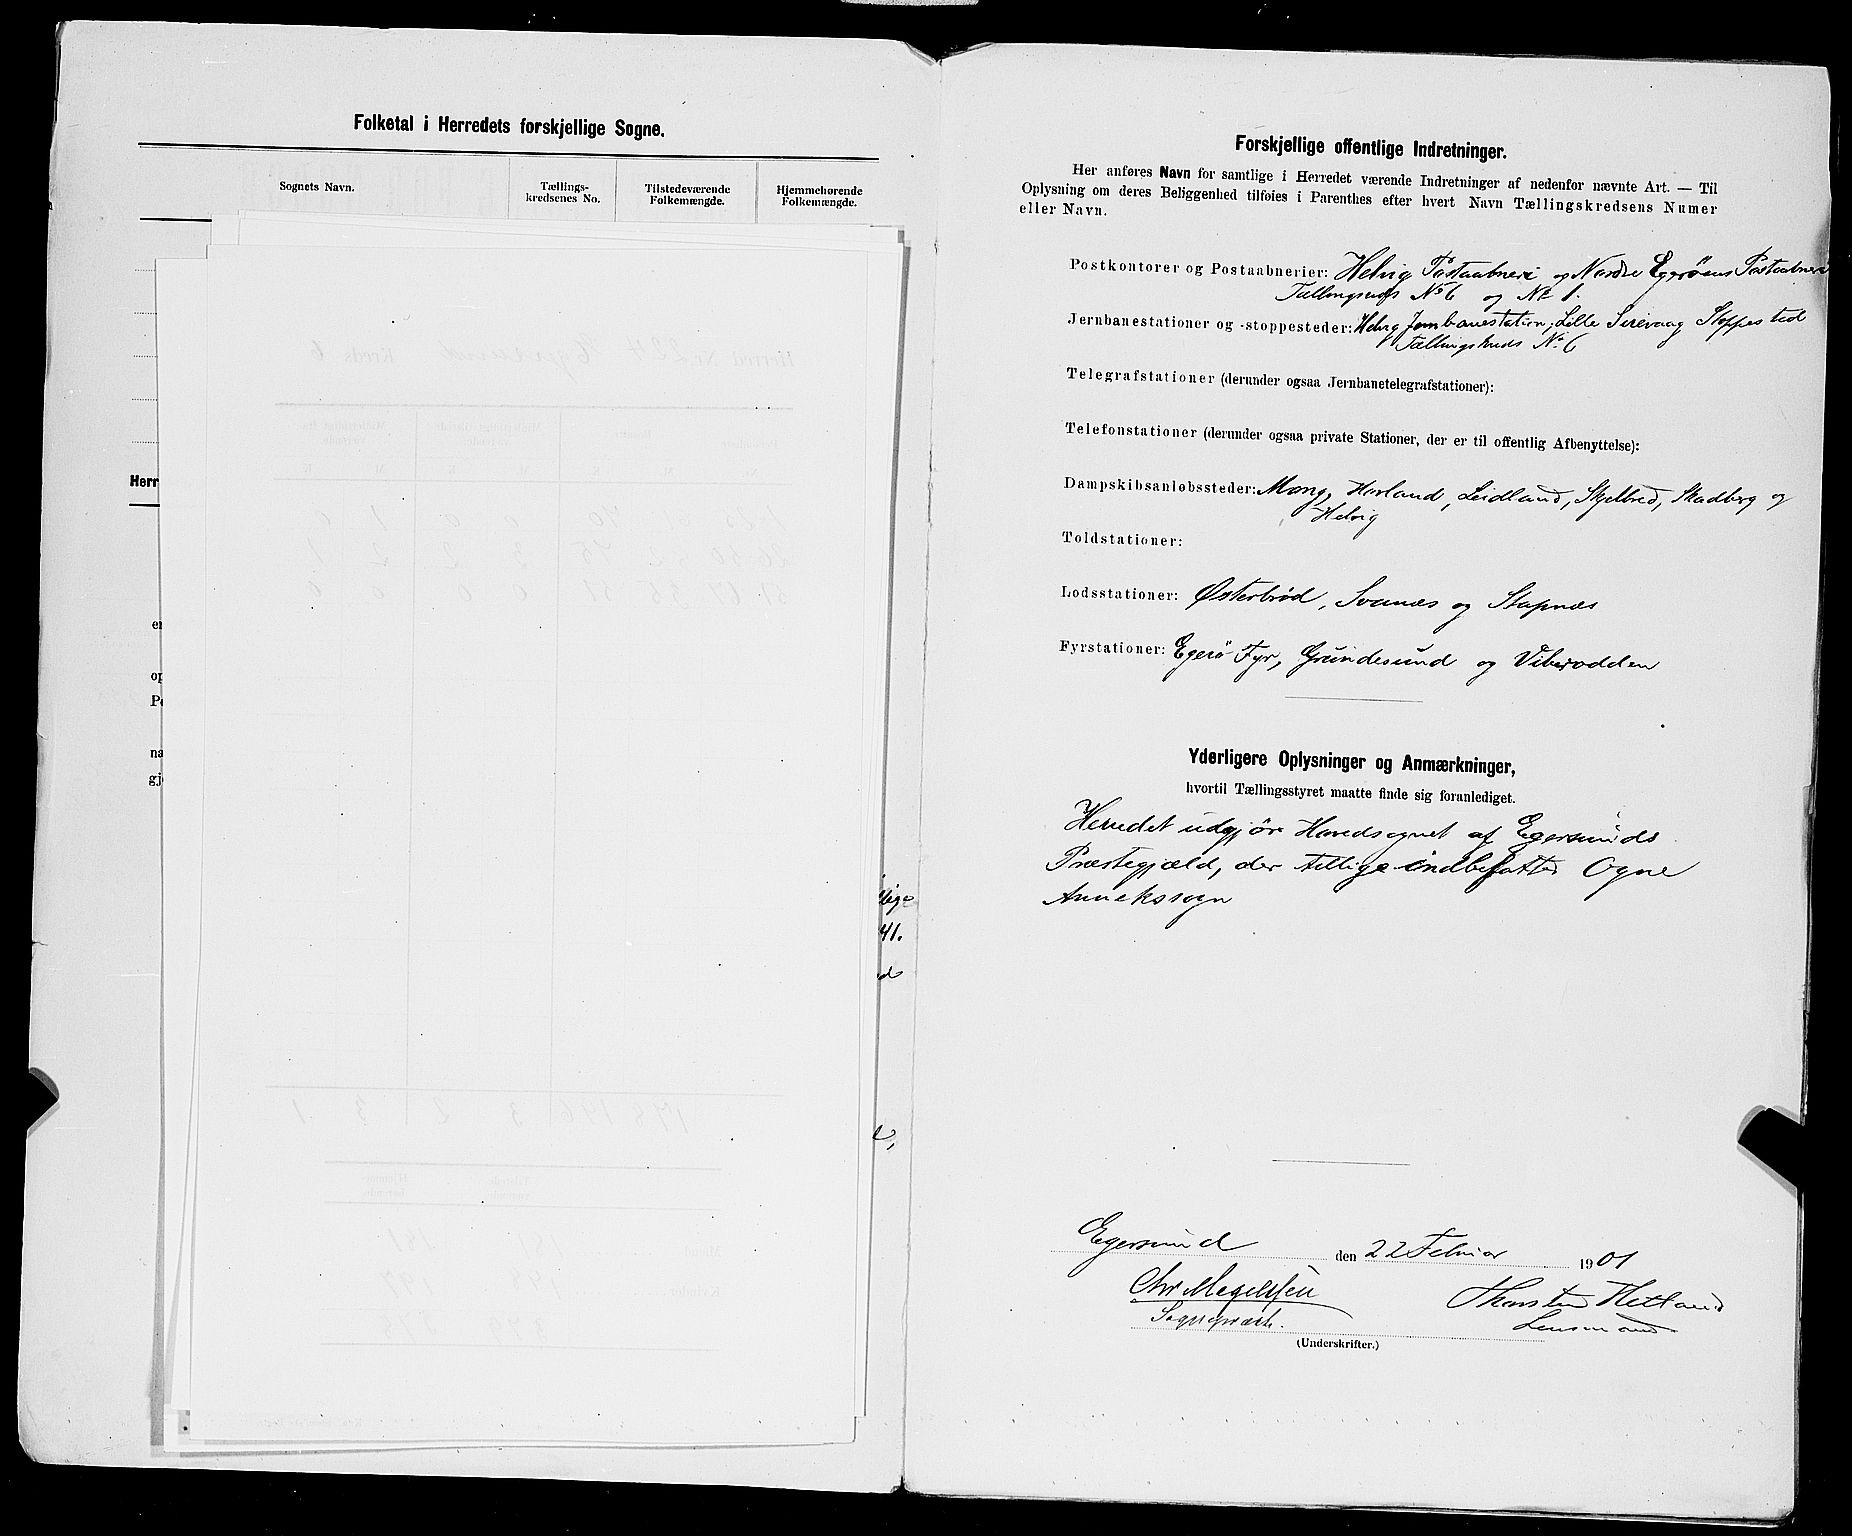 Folketal i Herredets forskjellige Sogne.
Sognets Navn.
Tællings-
kredsenes No.
Tilstedeværende
Folkemængde.
Hjemmehørende
Folkemængde.
Herr
en
op
Pe
na
gj
41.
Forskjellige offentlige Indretninger.
Her anføres Navn for samtlige i Herredet værende Indretninger af nedenfor nævnte Art. — Til
Oplysning om deres Beliggenhed tilføies i Parenthes efter hvert Navn Tællingskredsens Numer
eller Navn.
Postkontorer og Postaabnerier: Helvig Postaabneri og Nordre Egerøens Postaabneri
Tællingskreds No 6 og No 1.
Jernbanestationer og -stoppesteder: Helvig Jernbanestation, Lille Sirevaag Stoppested
Tællingskreds No 6
Telegrafstationer (derunder ogsaa Jernbanetelegrafstationer):
Telefonstationer (derunder ogsaa private Stationer, der er til offentlig Afbenyttelse):
Dampskibsanløbssteder: Mong, Havland, Leidland, Skjelbred, Skadberg og
Helvig
Toldstationer:
Lodsstationer: Østerbrød, Svanæs og Stapnæs
Fyrstationer: Egerö Fyr, Grundesund og Vibérodden
Yderligere Oplysninger og Anmærkninger,
hvortil Tællingsstyret maatte finde sig foranlediget.
Herredet udgjør Hovedsognet af Egersunds
Præstegjæld, der tillige indbefatter Ogne
Annekssogn
Egersund den 22 Februar 1901
Chr Magelssen
Sogneprest.
Thorsten Hetland
Lensmand
(Underskrifter.)